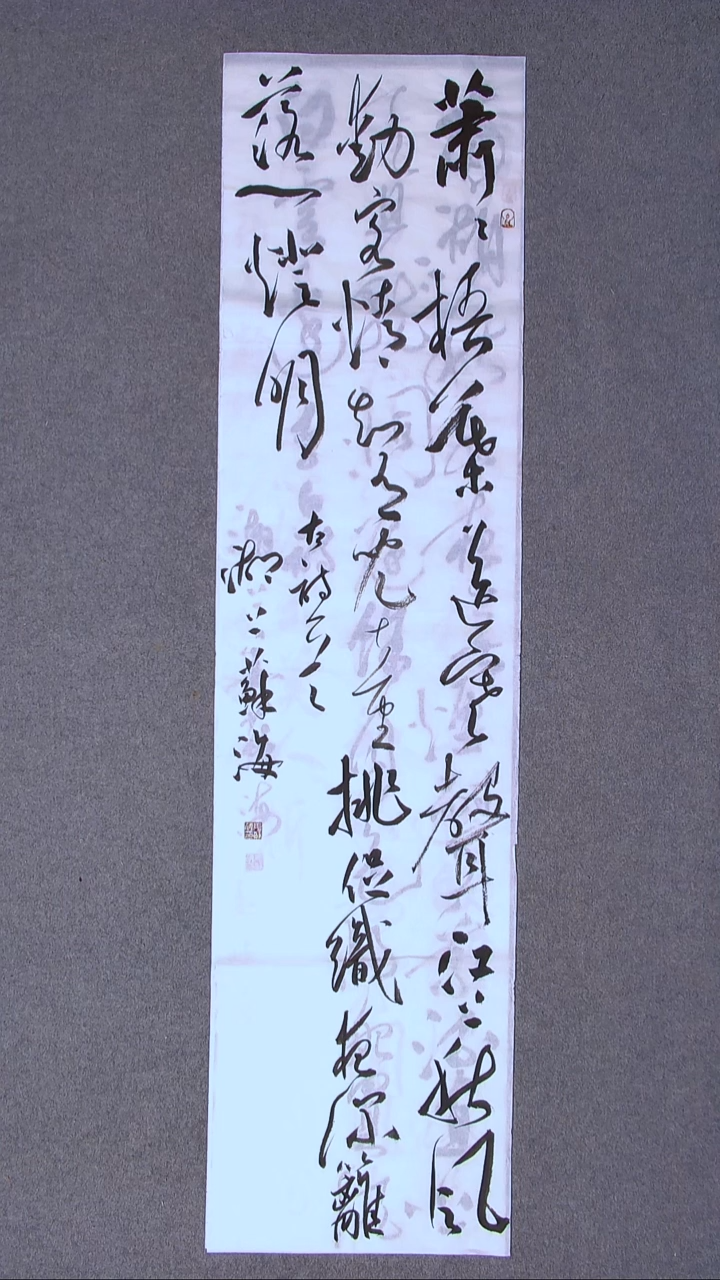 蕭〻梧葉送寒聲江上秋風
動客情知有兒童挑促織夜深籬
落一燈明
古詩
上蘇海